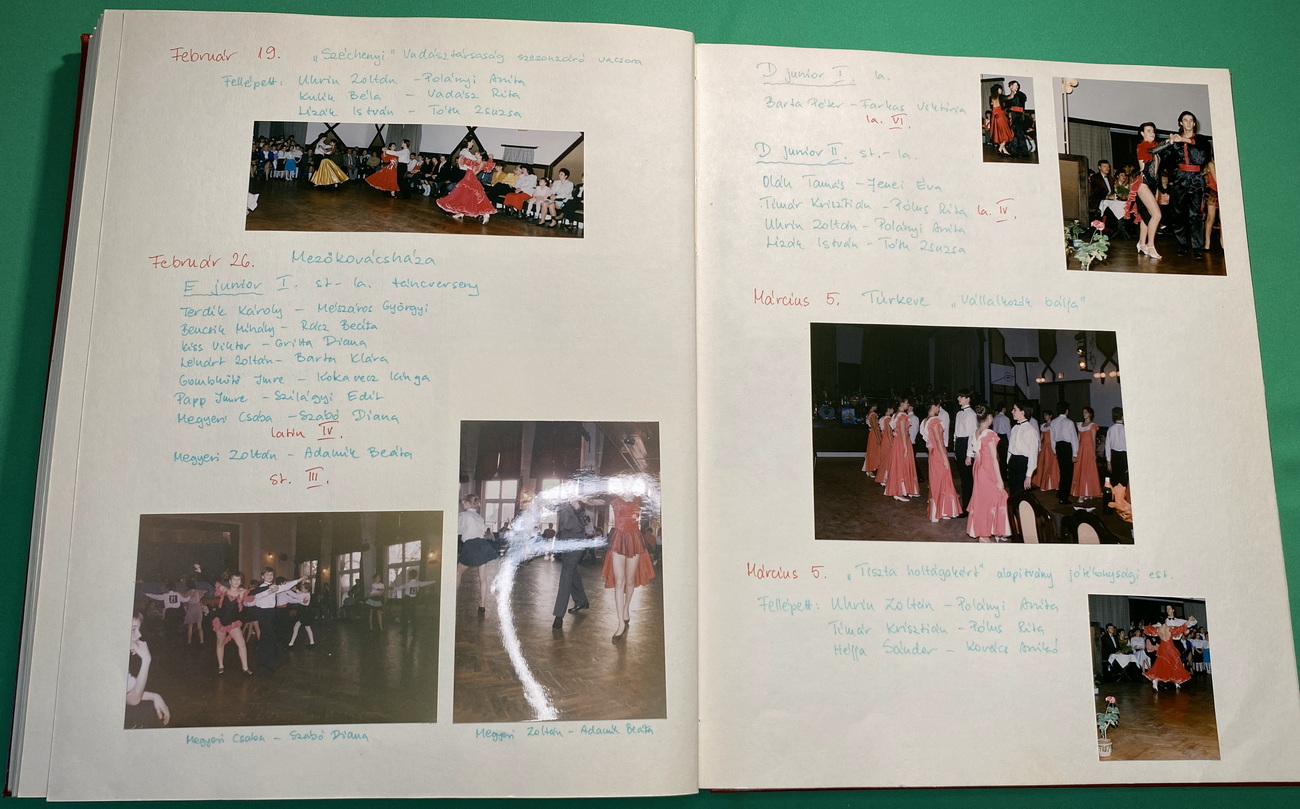 Február 19. „Széchenyi" Vadásztársaság szezonzáró vacsora
Fellépett: Uhrin Zoltán - Polányi Anita
Kulik Béla - Vadász Rita
Lizák István - Tóth Zsuzsa
Február 26. Mezőkovácsháza
E junior I. st- la. táncverseny
Terdik Károly - Mészáros Györgyi
Bencsik Mihály - Rácz Beáta
Kiss Viktor - Gritta Diana
Lénárt Zoltán - Barta Klára
Gombkötő Imre - Kokavecz Kinga
Papp Imre - Szilágyi Edit
Megyeri Csaba - Szabó Diana
latin IV.
Megyeri Zoltán - Adamik Beáta
st. III.
Megyeri Csaba - Szabó Diana
Megyeri Zoltán - Adamik Beáta
D junior I. la.
Barta Péter - Farkas Viktória
la. VI.
D junior II. st.- la.
Oláh Tamás - Jenei Éva
Tímár Krisztián - Pólus Rita la. IV.
Uhrin Zoltán - Polányi Anita
Lizák István - Tóth Zsuzsa
Március 5. Túrkeve „Vállalkozók bálja"
Március 5. „Tiszta holtágakért" alapítvány jótékonysági est.
Fellépett: Uhrin Zoltán - Polányi Anita
Tímár Krisztián - Pólus Rita
Sándor - Kovács Anikó